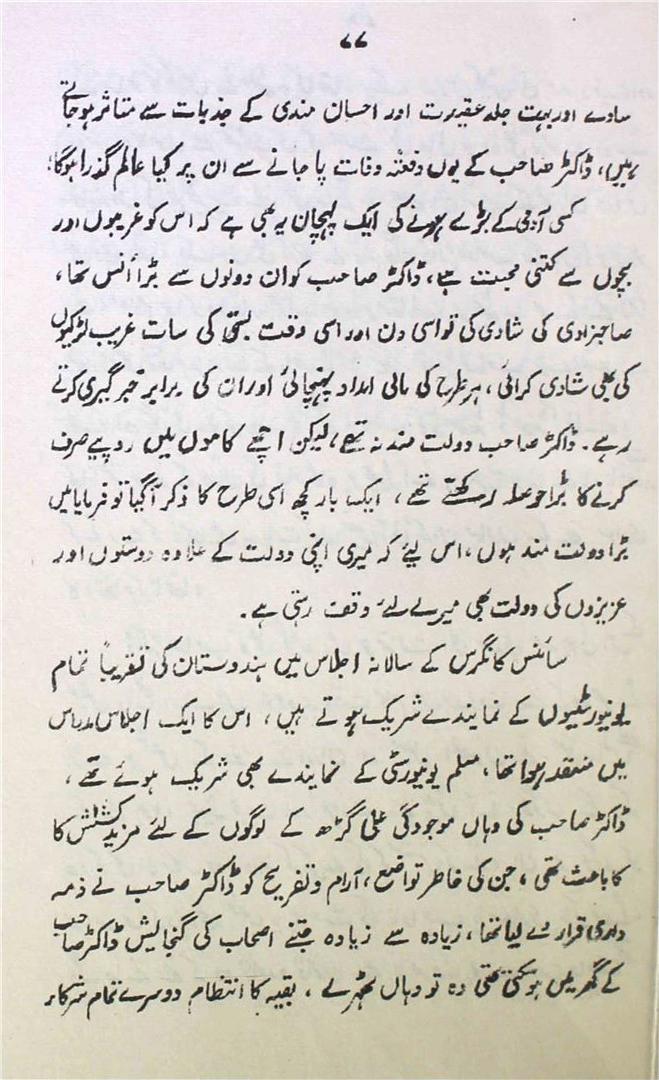 ۷۷
سادے اور بہت جلد عقیدت اور احسان مندی کے جذبات سے متاثر ہوجاتے
ہیں، ڈاکٹر صاحب کے یوں دفعتہ وفات پا جانے سے ان پر کیا عالم گذرا ہوگا!
کسی آدمی کے بڑے ہونے کی ایک پہچان یہ بھی ہے کہ اس کو غریبوں اور
بچوں سے کتنی محبت ہے، ڈاکٹر صاحب کو ان دونوں سے بڑا اُنس تھا،
صاحبزادی کی شادی کی تو اسی دن اور اسی وقت بستی کی سات غریب لڑکیوں
کی بھی شادی کرائی، ہر طرح کی مالی امداد پہنچائی اور ان کی برابر خبرگیری کرتے
رہے۔ ڈاکٹر صاحب دولت مند نہ تھے، لیکن اچھے کاموں میں روپیے صرف
کرنے کا بڑا حوصلہ رکھتے تھے، ایک بار کچھ اسی طرح کا ذکر آگیا تو فرمایا میں
بڑا دولت مند ہوں، اس لیئے کہ میری اپنی دولت کے علاوہ دوستوں اور
عزیزوں کی دولت بھی میرے لئے وقف رہتی ہے۔
سائنس کانگرس کے سالانہ اجلاس میں ہندوستان کی تقریباً تمام
یونیورسٹیوں کے نمایندے شریک ہوتے ہیں، اس کا ایک اجلاس مدراس
میں منعقد ہوا تھا، مسلم یونیورسٹی کے نمایندے بھی شریک ہوئے تھے،
ڈاکٹر صاحب کی وہاں موجودگی علی گڑھ کے لوگوں کے لئے مزید کشش کا
کا باعث تھی، جن کی خاطر تواضع، آرام و تفریح کو ڈاکٹر صاحب نے ذمہ
داری قرار دے لیا تھا، زیادہ سے زیادہ جتنے اصحاب کی گنجائیش ڈاکٹر صاحب
کے گھر میں ہوسکتی تھی وہ تو وہاں ٹھہرے، بقیہ کا انتظام دوسرے تمام شرکاء